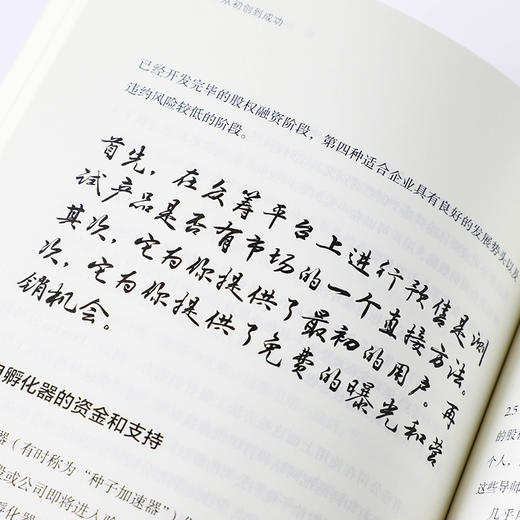 从初创到成功
已经开发完毕的股权融资阶段，第四种适合企业具有良好的发展势头以及
违约风险较低的阶段。
首先，在众筹平台上进行预售是测
试产品是否有市场的一个直接方法。
其次，它为你提供了最初的用户。再
次，它为你提供了免费的曝光和营
销机会。
孵化器的资金和支持
器（有时称为“种子加速器”）
段或公司即将进入
孵化器
2.5
的股
个人，
这些导师
几乎